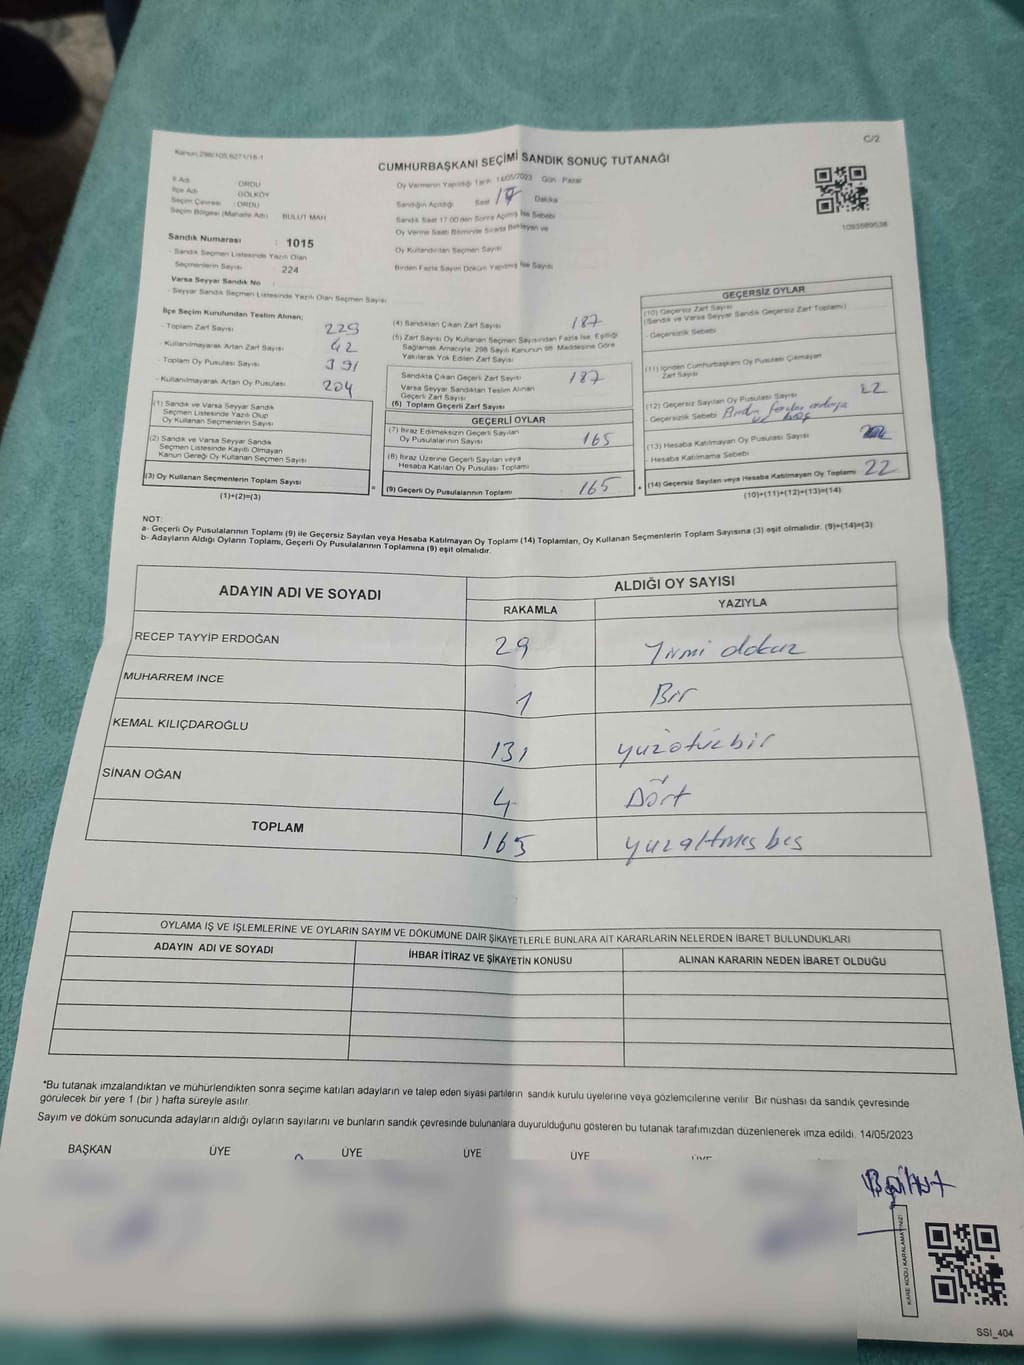 Kanun:298/105,6271/16.1
C/2
CUMHURBAŞKANI SEÇİMİ SANDIK SONUÇ TUTANAĞI
İl Adı : ORDU
İlçe Adı : GÖLKÖY
Seçim Çevresi : ORDU
Seçim Bölgesi (Mahalle Adı) BULUT MAH
Sandık Numarası : 1015
- Sandık Seçmen Listesinde Yazılı Olan
Seçmenlerin Sayısı 224
Varsa Seyyar Sandık No :
- Seyyar Sandık Seçmen Listesinde Yazılı Olan Seçmen Sayısı
Oy Vermenin Yapıldığı Tarih: 14/05/2023 Gün: Pazar
Sandığın Açıldığı Saat 17 Dakika
Sandık Saat 17:00'den Sonra Açılmış İse Sebebi
Oy Verme Saati Bitiminde Sırada Bekleyen ve
Oy Kullandırılan Seçmen Sayısı
Birden Fazla Sayım Döküm Yapılmış İse Sayısı
1093589538
İlçe Seçim Kurulundan Teslim Alınan;
- Toplam Zarf Sayısı 229
- Kullanılmayarak Artan Zarf Sayısı 42
- Toplam Oy Pusulası Sayısı 391
- Kullanılmayarak Artan Oy Pusulası 204
(1) Sandık ve Varsa Seyyar Sandık
Seçmen Listesinde Yazılı Olup
Oy Kullanan Seçmenlerin Sayısı
(2) Sandık ve Varsa Seyyar Sandık
Seçmen Listesinde Kayıtlı Olmayan
Kanun Gereği Oy Kullanan Seçmen Sayısı
(3) Oy Kullanan Seçmenlerin Toplam Sayısı
(1)+(2)=(3)
(4) Sandıktan Çıkan Zarf Sayısı 187
(5) Zarf Sayısı Oy Kullanan Seçmen Sayısından Fazla İse, Eşitliği
Sağlamak Amacıyla, 298 Sayılı Kanunun 98. Maddesine Göre
Yakılarak Yok Edilen Zarf Sayısı
Sandıkta Çıkan Geçerli Zarf Sayısı 187
Varsa Seyyar Sandıktan Teslim Alınan
Geçerli Zarf Sayısı
(6) Toplam Geçerli Zarf Sayısı
GEÇERLİ OYLAR
(7) İtiraz Edilmeksizin Geçerli Sayılan
Oy Pusulalarının Sayısı 165
(8) İtiraz Üzerine Geçerli Sayılan veya
Hesaba Katılan Oy Pusulası Toplamı
= (9) Geçerli Oy Pusulalarının Toplamı 165
GEÇERSİZ OYLAR
(10) Geçersiz Zarf Sayısı
(Sandık ve Varsa Seyyar Sandık Geçersiz Zarf Toplamı)
- Geçersizlik Sebebi
(11) İçinden Cumhurbaşkanı Oy Pusulası Çıkmayan
Zarf Sayısı
(12) Geçersiz Sayılan Oy Pusulası Sayısı 22
- Geçersizlik Sebebi Birden fazla
(13) Hesaba Katılmayan Oy Pusulası Sayısı
- Hesaba Katılmama Sebebi
+ (14) Geçersiz Sayılan veya Hesaba Katılmayan Oy Toplamı 22
(10)+(11)+(12)+(13)=(14)
NOT:
a- Geçerli Oy Pusulalarının Toplamı (9) ile Geçersiz Sayılan veya Hesaba Katılmayan Oy Toplamı (14) Toplamları, Oy Kullanan Seçmenlerin Toplam Sayısına (3) eşit olmalıdır. (9)+(14)=(3)
b- Adayların Aldığı Oyların Toplamı, Geçerli Oy Pusulalarının Toplamına (9) eşit olmalıdır.
ADAYIN ADI VE SOYADI ALDIĞI OY SAYISI
RAKAMLA YAZIYLA
RECEP TAYYİP ERDOĞAN 29 Yirmi dokuz
MUHARREM İNCE 1 Bir
KEMAL KILIÇDAROĞLU 131 yüzotuzbir
SİNAN OĞAN 4 Dört
TOPLAM 165 yüzaltmışbeş
OYLAMA İŞ VE İŞLEMLERİNE VE OYLARIN SAYIM VE DÖKÜMÜNE DAİR ŞİKAYETLERLE BUNLARA AİT KARARLARIN NELERDEN İBARET BULUNDUKLARI
ADAYIN ADI VE SOYADI İHBAR İTİRAZ VE ŞİKAYETİN KONUSU ALINAN KARARIN NEDEN İBARET OLDUĞU
*Bu tutanak imzalandıktan ve mühürlendikten sonra seçime katılan adayların ve talep eden siyasi partilerin sandık kurulu üyelerine veya gözlemcilerine verilir. Bir nüshası da sandık çevresinde
görülecek bir yere 1 (bir ) hafta süreyle asılır.
Sayım ve döküm sonucunda adayların aldığı oyların sayılarını ve bunların sandık çevresinde bulunanlara duyurulduğunu gösteren bu tutanak tarafımızdan düzenlenerek imza edildi. 14/05/2023
BAŞKAN ÜYE ÜYE ÜYE ÜYE ÜYE
KARE KODU KARALAMAYINIZ!
SSI_404